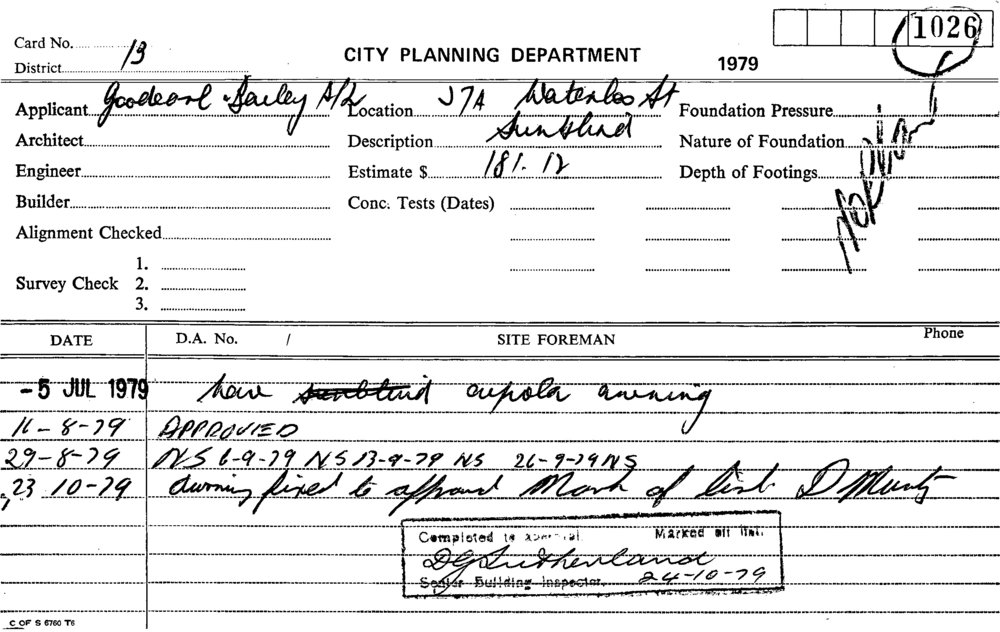 1026
Card No. 13
District
CITY PLANNING DEPARTMENT
1979
Applicant Goodearl Bailey P/L Location 57A Waterloo St Foundation Pressure
Architect Description Sunblind Nature of Foundation
Engineer Estimate $ 181.12 Depth of Footings
Builder Conc. Tests (Dates)
Alignment Checked
Survey Check 1.
2.
3.
DATE D.A. No. / SITE FOREMAN Phone
-5 JUL 1979 New sunblind cupola awning
16-8-79 APPROVED
29-8-79 NS 6-9-79 NS 13-9-79 NS 26-9-79 NS
23 10-79 Awning fixed to approval Mark of list D Muntz
Completed to approval. Marked off list.
DG Sutherland
Senior Building Inspector. 24-10-79
C OF S 6760 T6